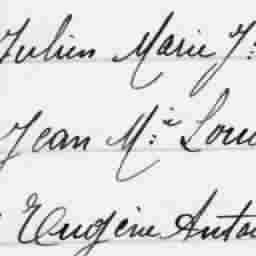 Julien Marie J.
Jean M.ie Loui
Eugène Antoi